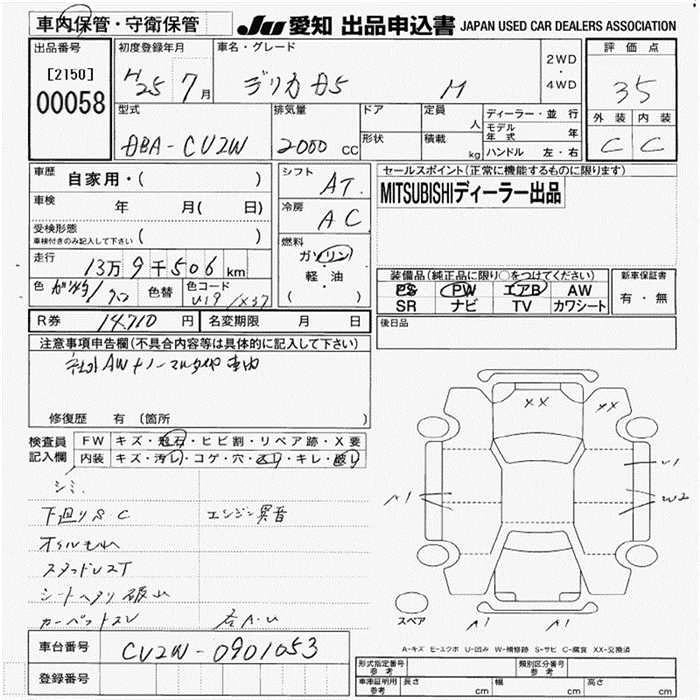 車内保管・守衛保管 JU 愛知 出品申込書 JAPAN USED CAR DEALERS ASSOCIATION
出品番号 初度登録年月 車名・グレード 2WD・4WD 評価点
[2150]
00058
H25 7月 デリカD5 M 35
外装 内装
C C
型式 排気量 ドア 定員 人 ディーラー・並行
DBA-CV2W 2000cc 形状 積載 kg モデル年式 年
ハンドル 左・右
車歴 自家用・( )
シフト AT
セールスポイント(正常に機能するものに限ります)
MITSUBISHIディーラー出品
車検 年 月( 日)
冷房 AC
受検形態
車検付きのみ記入して下さい ( )
燃料 ガソリン・軽・油 ( )
走行 13万9千506km
装備品(純正品に限り○をつけてください) 新車保証書
色 / クロ 色替 色コード U19/X37
PS PW エアB AW 有・無
SR ナビ TV カワシート
R券 14,710円 名変期限 月 日
後日品
注意事項申告欄(不具合内容等は具体的に記入して下さい)
社外AW ノーマルタイヤ車内
修復歴 有(箇所 )
検査員記入欄 FW キズ・飛石・ヒビ割・リペア跡・X要
内装 キズ・汚れ・コゲ・穴・・キレ・破れ
シミ
下廻りS C エンジン異音
オイルモレ
スタッドレスT
シートヘタリ破れ
カーペットスレ 右A・U
XX XX
A1 U1
W2
スペア A1 A1
A-キズ E-エクボ U-凹み W-補修跡 S-サビ C-腐食 XX-交換済
車台番号 CV2W-0901053
登録番号
形式指定番号 参考 類別区分番号 参考
車庫証明用 参考 長さ cm 幅 cm 高さ cm